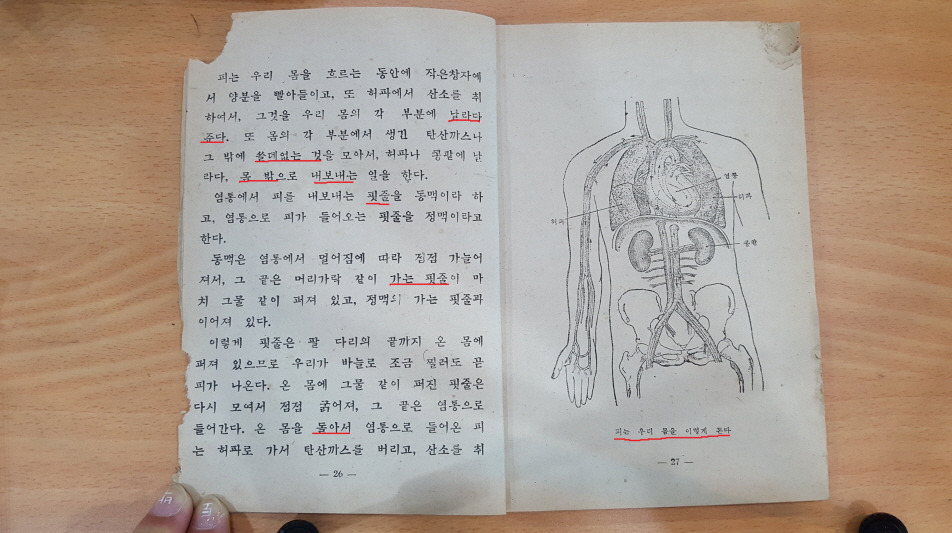 피는 우리 몸을 흐르는 동안에 작은창자에
서 양분을 빨아들이고, 또 허파에서 산소를 취
하여서, 그것을 우리 몸의 각 부분에 날라다
준다. 또 몸의 각 부분에서 생긴 탄산까스나
그 밖에 쓸데없는 것을 모아서, 허파나 콩팥에 날
라다, 몸 밖으로 내보내는 일을 한다.
염통에서 피를 내보내는 핏줄을 동맥이라 하
고, 염통으로 피가 들어오는 핏줄을 정맥이라고
한다.
동맥은 염통에서 멀어짐에 따라 점점 가늘어
져서, 그 끝은 머리가락 같이 가는 핏줄이 마
치 그물 같이 퍼져 있고, 정맥의 가는 핏줄과
이어져 있다.
이렇게 핏줄은 팔 다리의 끝까지 온 몸에
퍼져 있으므로 우리가 바늘로 조금 찔러도 곧
피가 나온다. 온 몸에 그물 같이 퍼진 핏줄은
다시 모여서 점점 굵어져, 그 끝은 염통으로
들어간다. 온 몸을 돌아서 염통으로 들어온 피
는 허파로 가서 탄산까스를 버리고, 산소를 취
— 26 —
염통
허파
허파
콩팥
피는 우리 몸을 이렇게 돈다
— 27 —